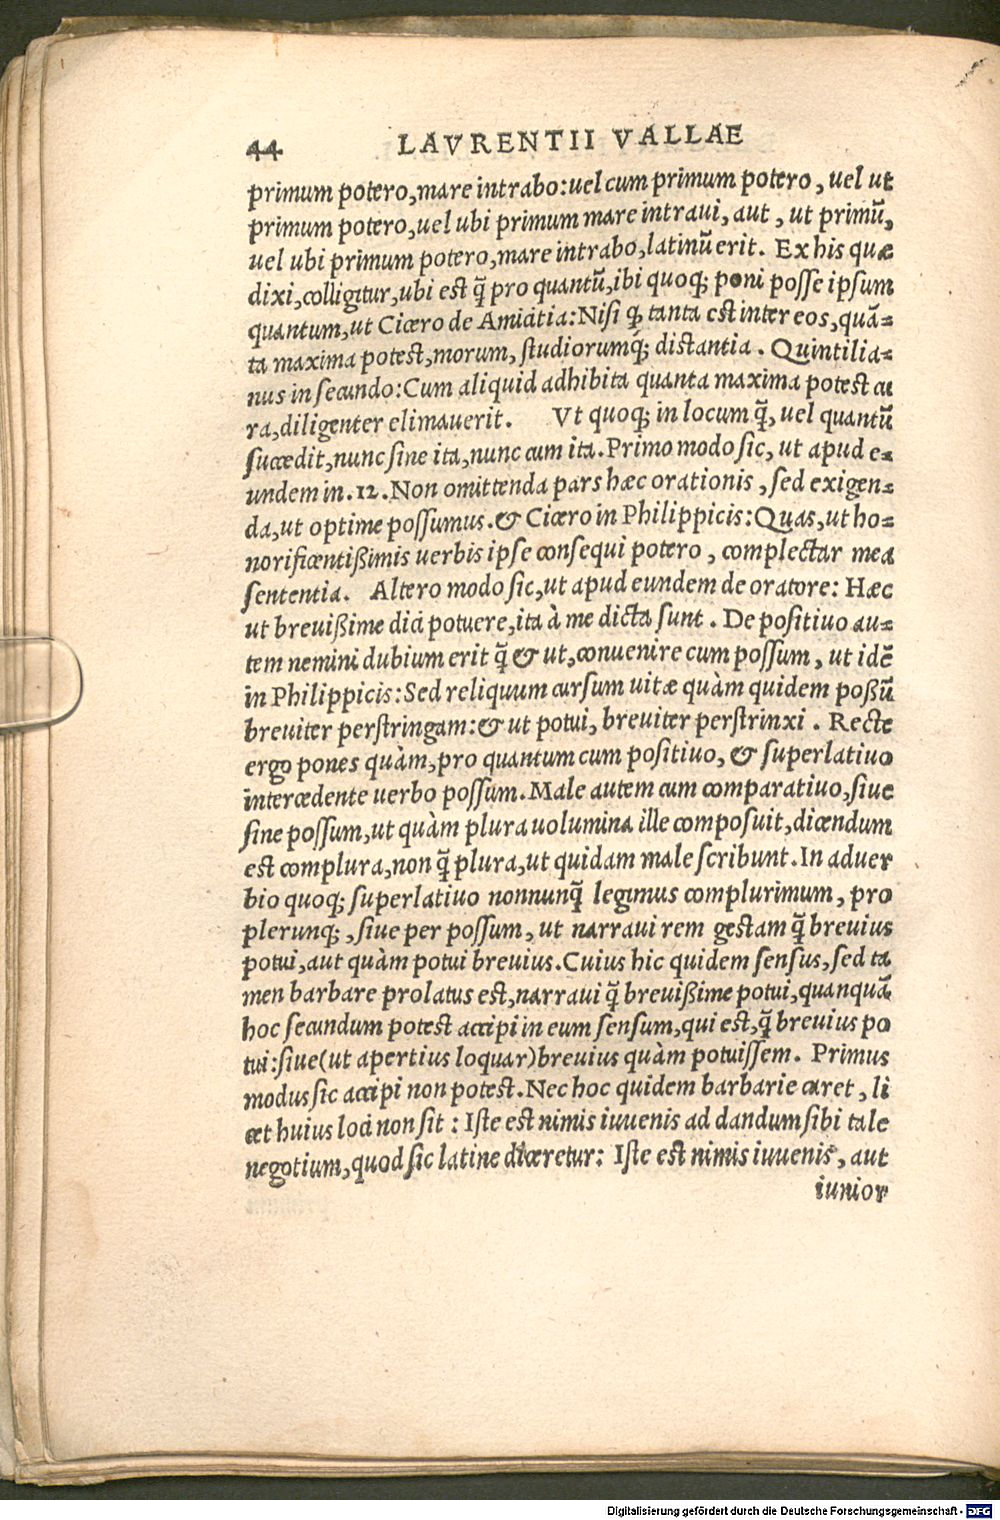 44 LAVRENTII VALLAE
primum potero,mare intrabo:uel cum primum potero, uel ut
primum potero,uel ubi primum mare intraui, aut, ut primũ,
uel ubi primum potero,mare intrabo,latinũ erit. Ex his quæ
dixi,colligitur,ubi est q̃ pro quantũ,ibi quoq; poni posse ipsum
quantum,ut Cicero de Amicitia:Nisi q, tanta est inter eos,quã=
ta maxima potest,morum, studiorumq́; distantia. Quintilia=
nus in secundo:Cum aliquid adhibita quanta maxima potest cu
ra,diligenter elimauerit. Vt quoq; in locum q̃, uel quantũ
succedit,nunc sine ita,nunc cum ita.Primo modo sic, ut apud e=
undem in.12.Non omittenda pars hæc orationis, sed exigen=
da,ut optime possumus.& Cicero in Philippicis:Quas,ut ho=
norificentißimis uerbis ipse consequi potero, complectar mea
sententia. Altero modo sic,ut apud eundem de oratore: Hæc
ut breuißime dici potuere,ita à me dicta sunt. De positiuo au=
tem nemini dubium erit q̃ & ut,conuenire cum possum, ut idẽ
in Philippicis:Sed reliquum cursum uitæ quàm quidem poßũ
breuiter perstringam:& ut potui, breuiter perstrinxi. Recte
ergo pones quàm,pro quantum cum positiuo, & superlatiuo
intercedente uerbo possum.Male autem cum comparatiuo,siue
sine possum,ut quàm plura uolumina ille composuit,dicendum
est complura,non q̃ plura,ut quidam male scribunt.In aduer
bio quoq; superlatiuo nonnunq̃ legimus complurimum, pro
plerunq;, siue per possum, ut narraui rem gestam q̃ breuius
potui,aut quàm potui breuius.Cuius hic quidem sensus,sed ta
men barbare prolatus est,narraui q̃ breuißime potui,quanquã
hoc secundum potest accipi in eum sensum,qui est,q̃ breuius po
tui:siue(ut apertius loquar)breuius quàm potuissem. Primus
modus sic accipi non potest.Nec hoc quidem barbarie caret, li
cet huius loci non sit: Iste est nimis iuuenis ad dandum sibi tale
negotium,quod sic latine diceretur: Iste est nimis iuuenis, aut
iunior
Digitalisierung gefördert durch die Deutsche Forschungsgemeinschaft - DFG